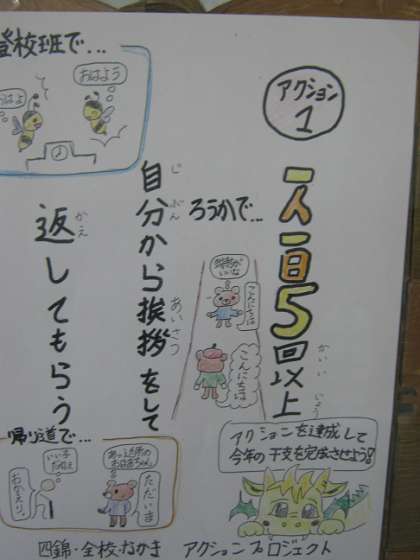 アクション
1
一人一日5回以上
かい いじょう
自分から挨拶をして
じ ぶん あいさつ
返してもらう
かえ
登校班で…
おはよう
ろうかで…
こんにちは
こんにちは
帰り道で…
いい子だねぇ
おかえり。
ただいま
アクションを達成して
今年の干支を完成させよう!
四錦・全校・なかき アクションプロジェクト